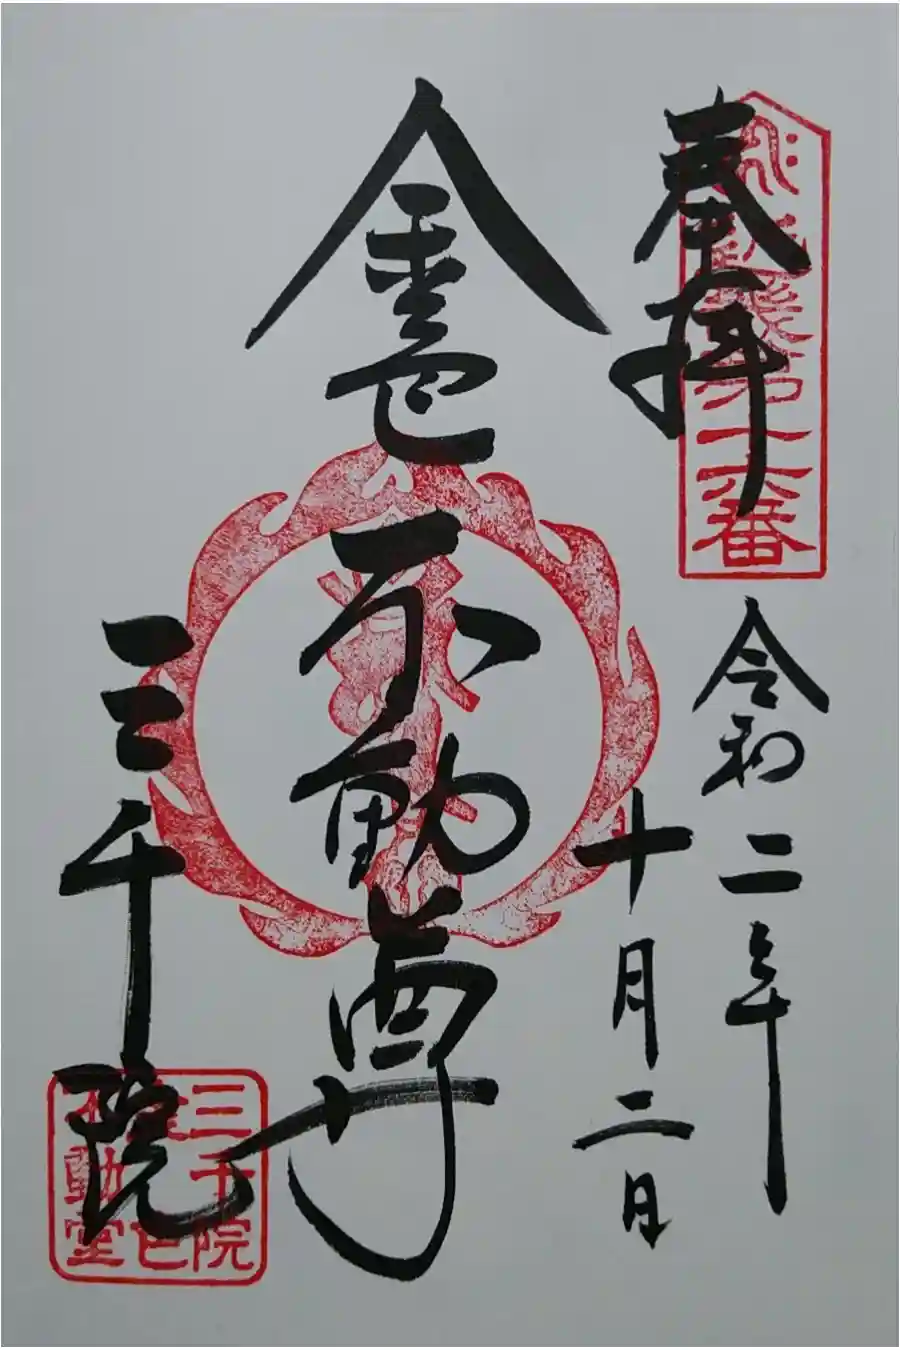 奉拝
近畿第十六番
令和二年
十月二日
金色不動尊
三千院
三千院
金色
不動堂